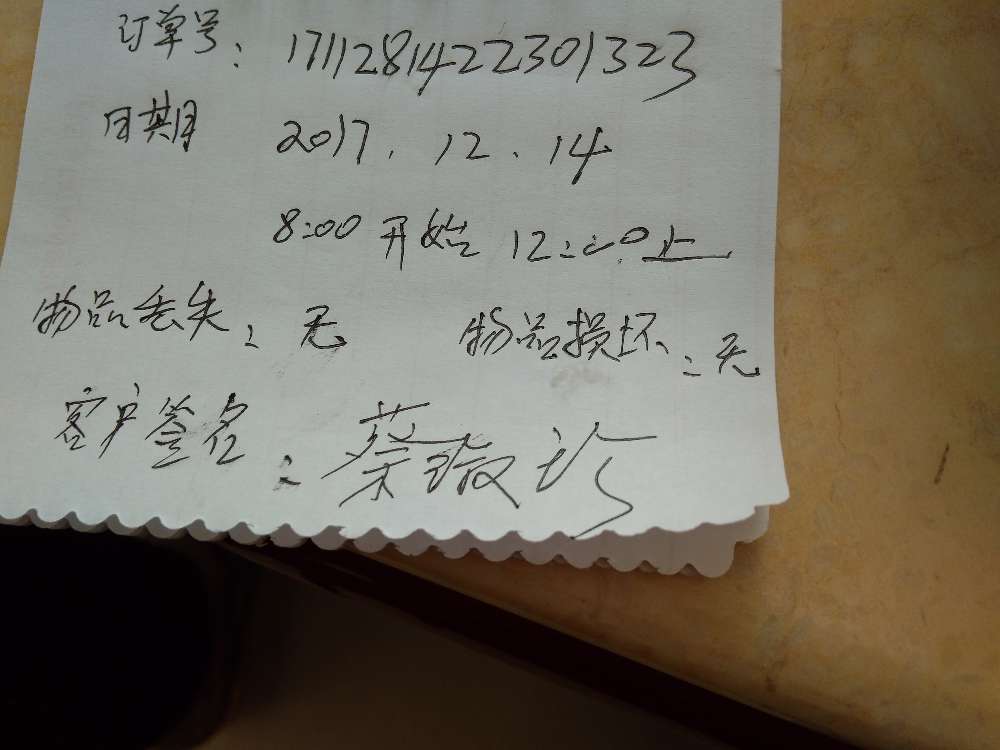 订单号：1711281422301323
日期 2017.12.14
8:00开始 12:00止
物品丢失：无 物品损坏：无
客户签名：蔡